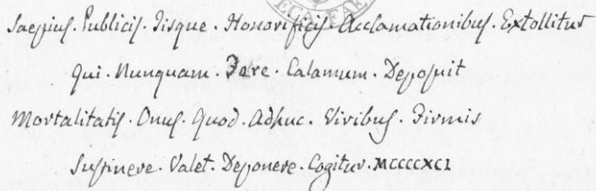 Saepius. Publicis. Iisque. Honorificis. Acclamationibus. Extollitur
Qui. Nunquam. Fere. Calamum. Deposuit
Mortalitatis. Onus. Quod. Adhuc. Viribus. Firmis
Sustinere. Valet. Deponere. Cogitur. MCCCCXCI